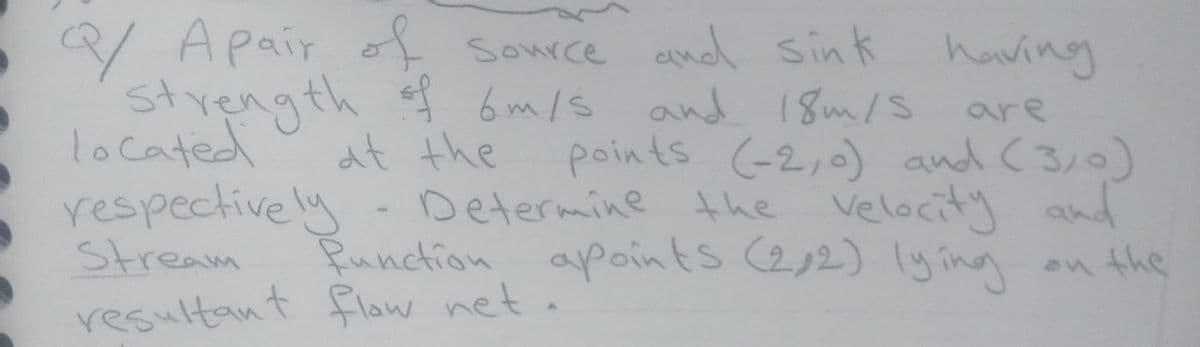 Q/ A pair of source and sink having
strength of 6m/s and 18m/s are
located at the points (-2,0) and (3,0)
respectively. Determine the velocity and
Stream function apoints (2,2) lying on the
resultant flow net.